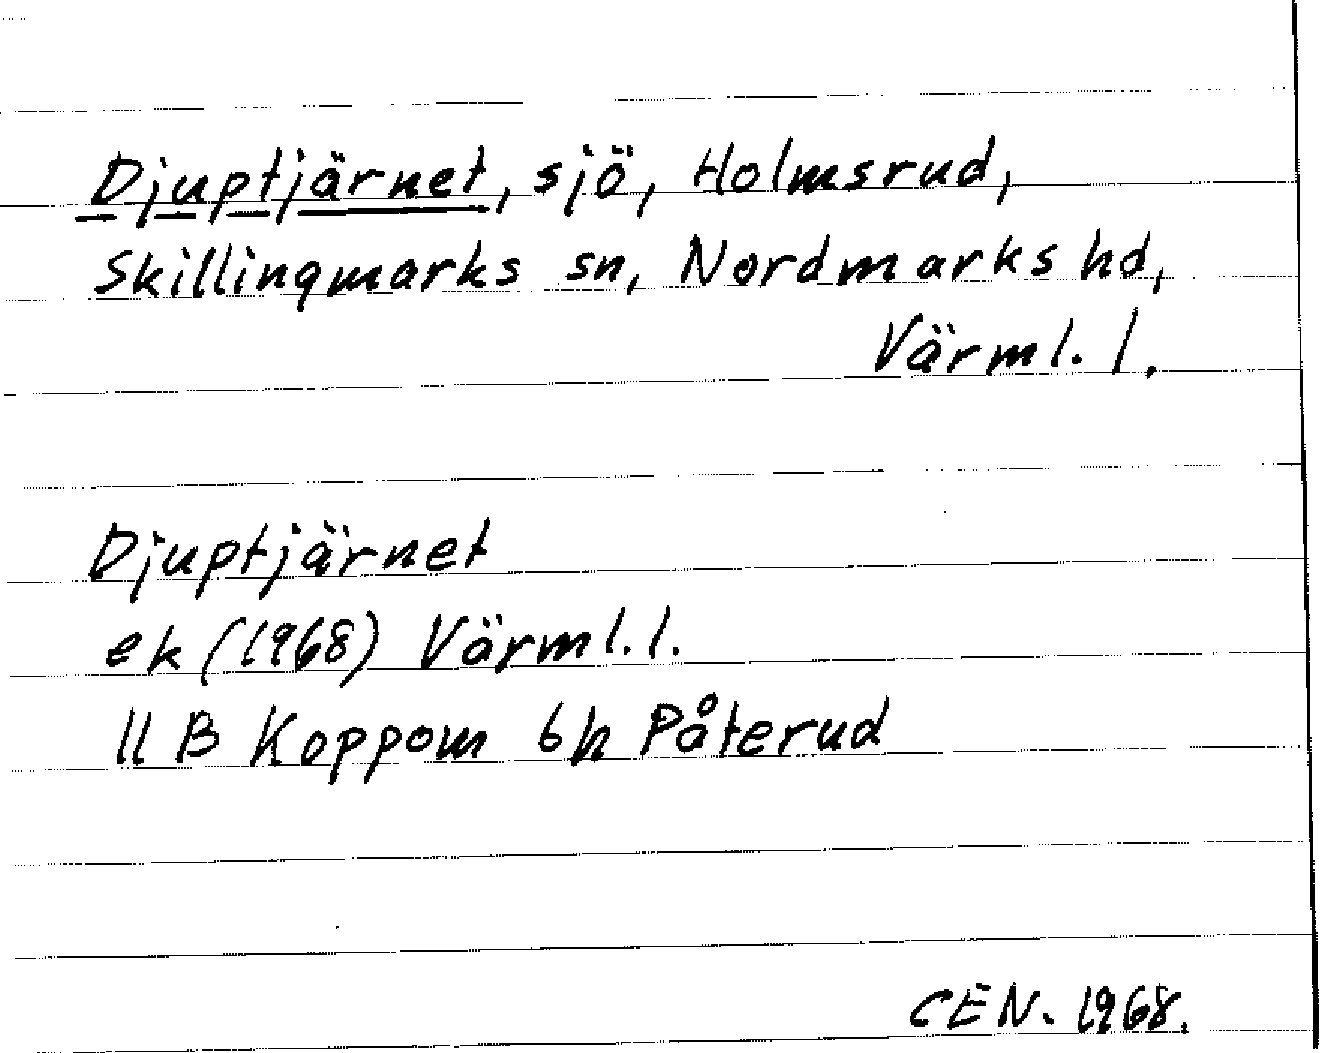 Djuptjärnet, sjö, Holmsrud,
Skillingmarks sn, Nordmarks hd,
Värml. l.
Djuptjärnet
ek (1968) Värml. l.
11 B Koppom 6h Påterud
CEN. 1968.